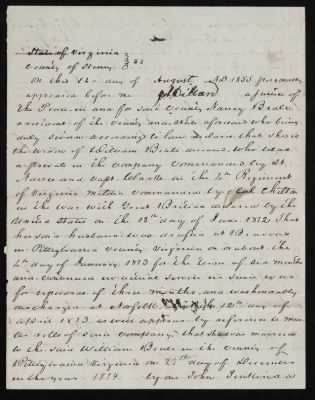 State of Virginia
County of Henry } ss
On this 12 day of August AD 1855 personally
appeared before me a Justice of
the Peace in and for said County Nancy Beale
a resident of the County and State aforesaid who being
duly sworn according to law declares that she is
the widow of William Beale deceased who was
a private in the Company commanded by
and Capt. in the 4th Regiment
of Virginia Militia commanded by Col
in the war with Great Britian declared by the
United States on the 18th day of June 1812 That
her said husband was drafted at
in Pittsylvania County Virginia on or about the
day of January 1813 for the term of six months
and continued in actual service in said war
for upwards of three months, and was honorably
discharged at Norfolk 12th day of
April 1813, as will appear by reference to mus
ter rolls of said Company, that she was married
to the said William Beale in the County of
Pittsylvania Virginia on day of December
in the year 1814 by one John Jenkins a